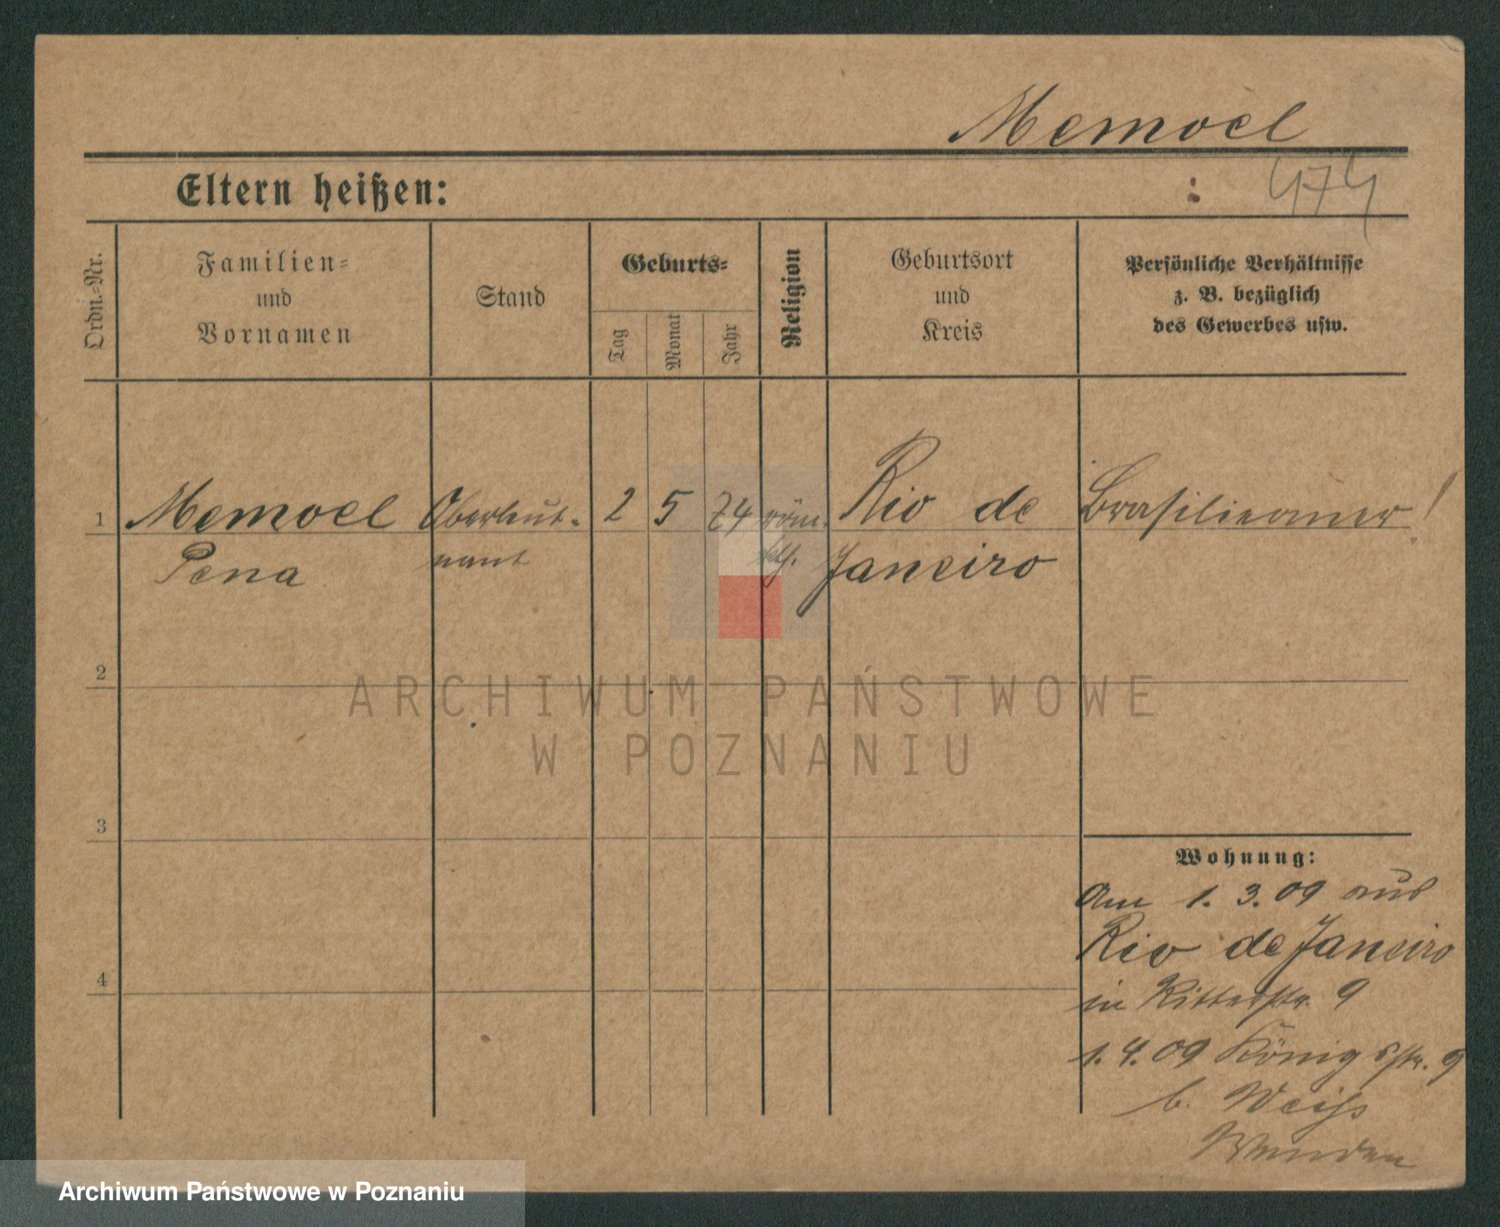 Memoel
474
Eltern heißen:
Ordn.-Nr.
Familien-
und
Vornamen
Stand
Geburts-
Tag
Monat
Jahr
Religion
Geburtsort
und
Kreis
Persönliche Verhältnisse
z. B. bezüglich
des Gewerbes usw.
1 Memoel Oberleut- 2 5 74 röm. Rio de Brasilianer!
Pena nant kth. Janeiro
2
3
4
Wohnung:
Am 1. 3. 09 aus
Rio de Janeiro
in Ritterstr. 9
1. 4. 09 Königstr. 9
b. Weiß
ARCHIWUM PAŃSTWOWE
W POZNANIU
Archiwum Państwowe w Poznaniu